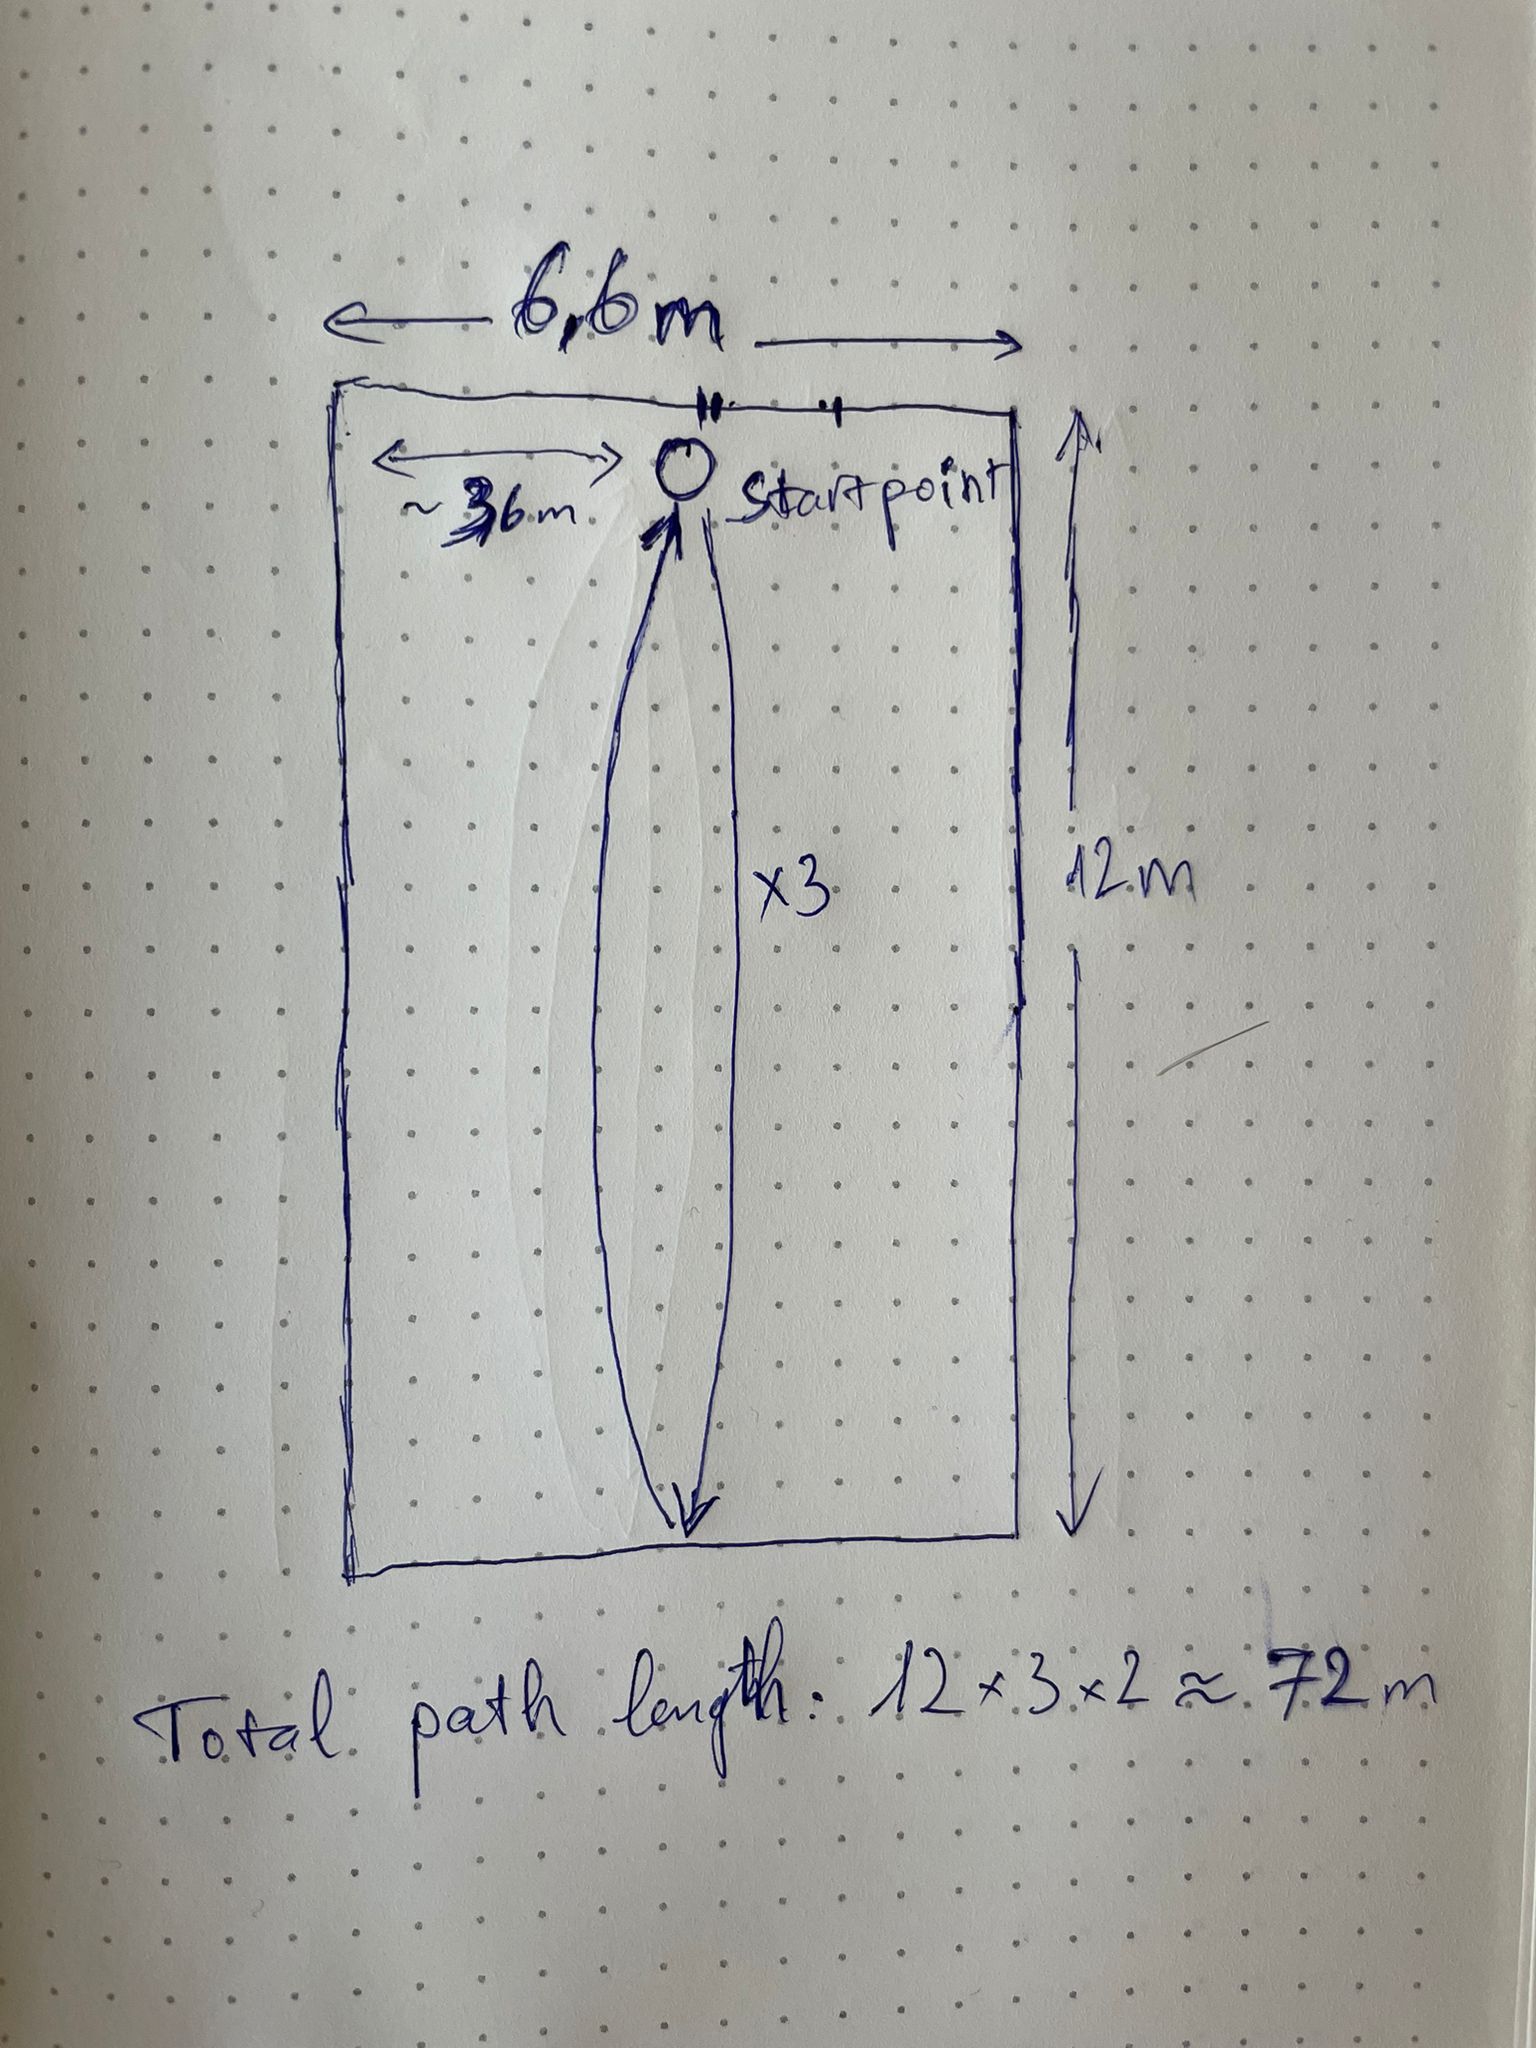 6,6m
~3,6m
Startpoint
x3
12m
Total path length: 12 x 3 x 2 ≈ 72m